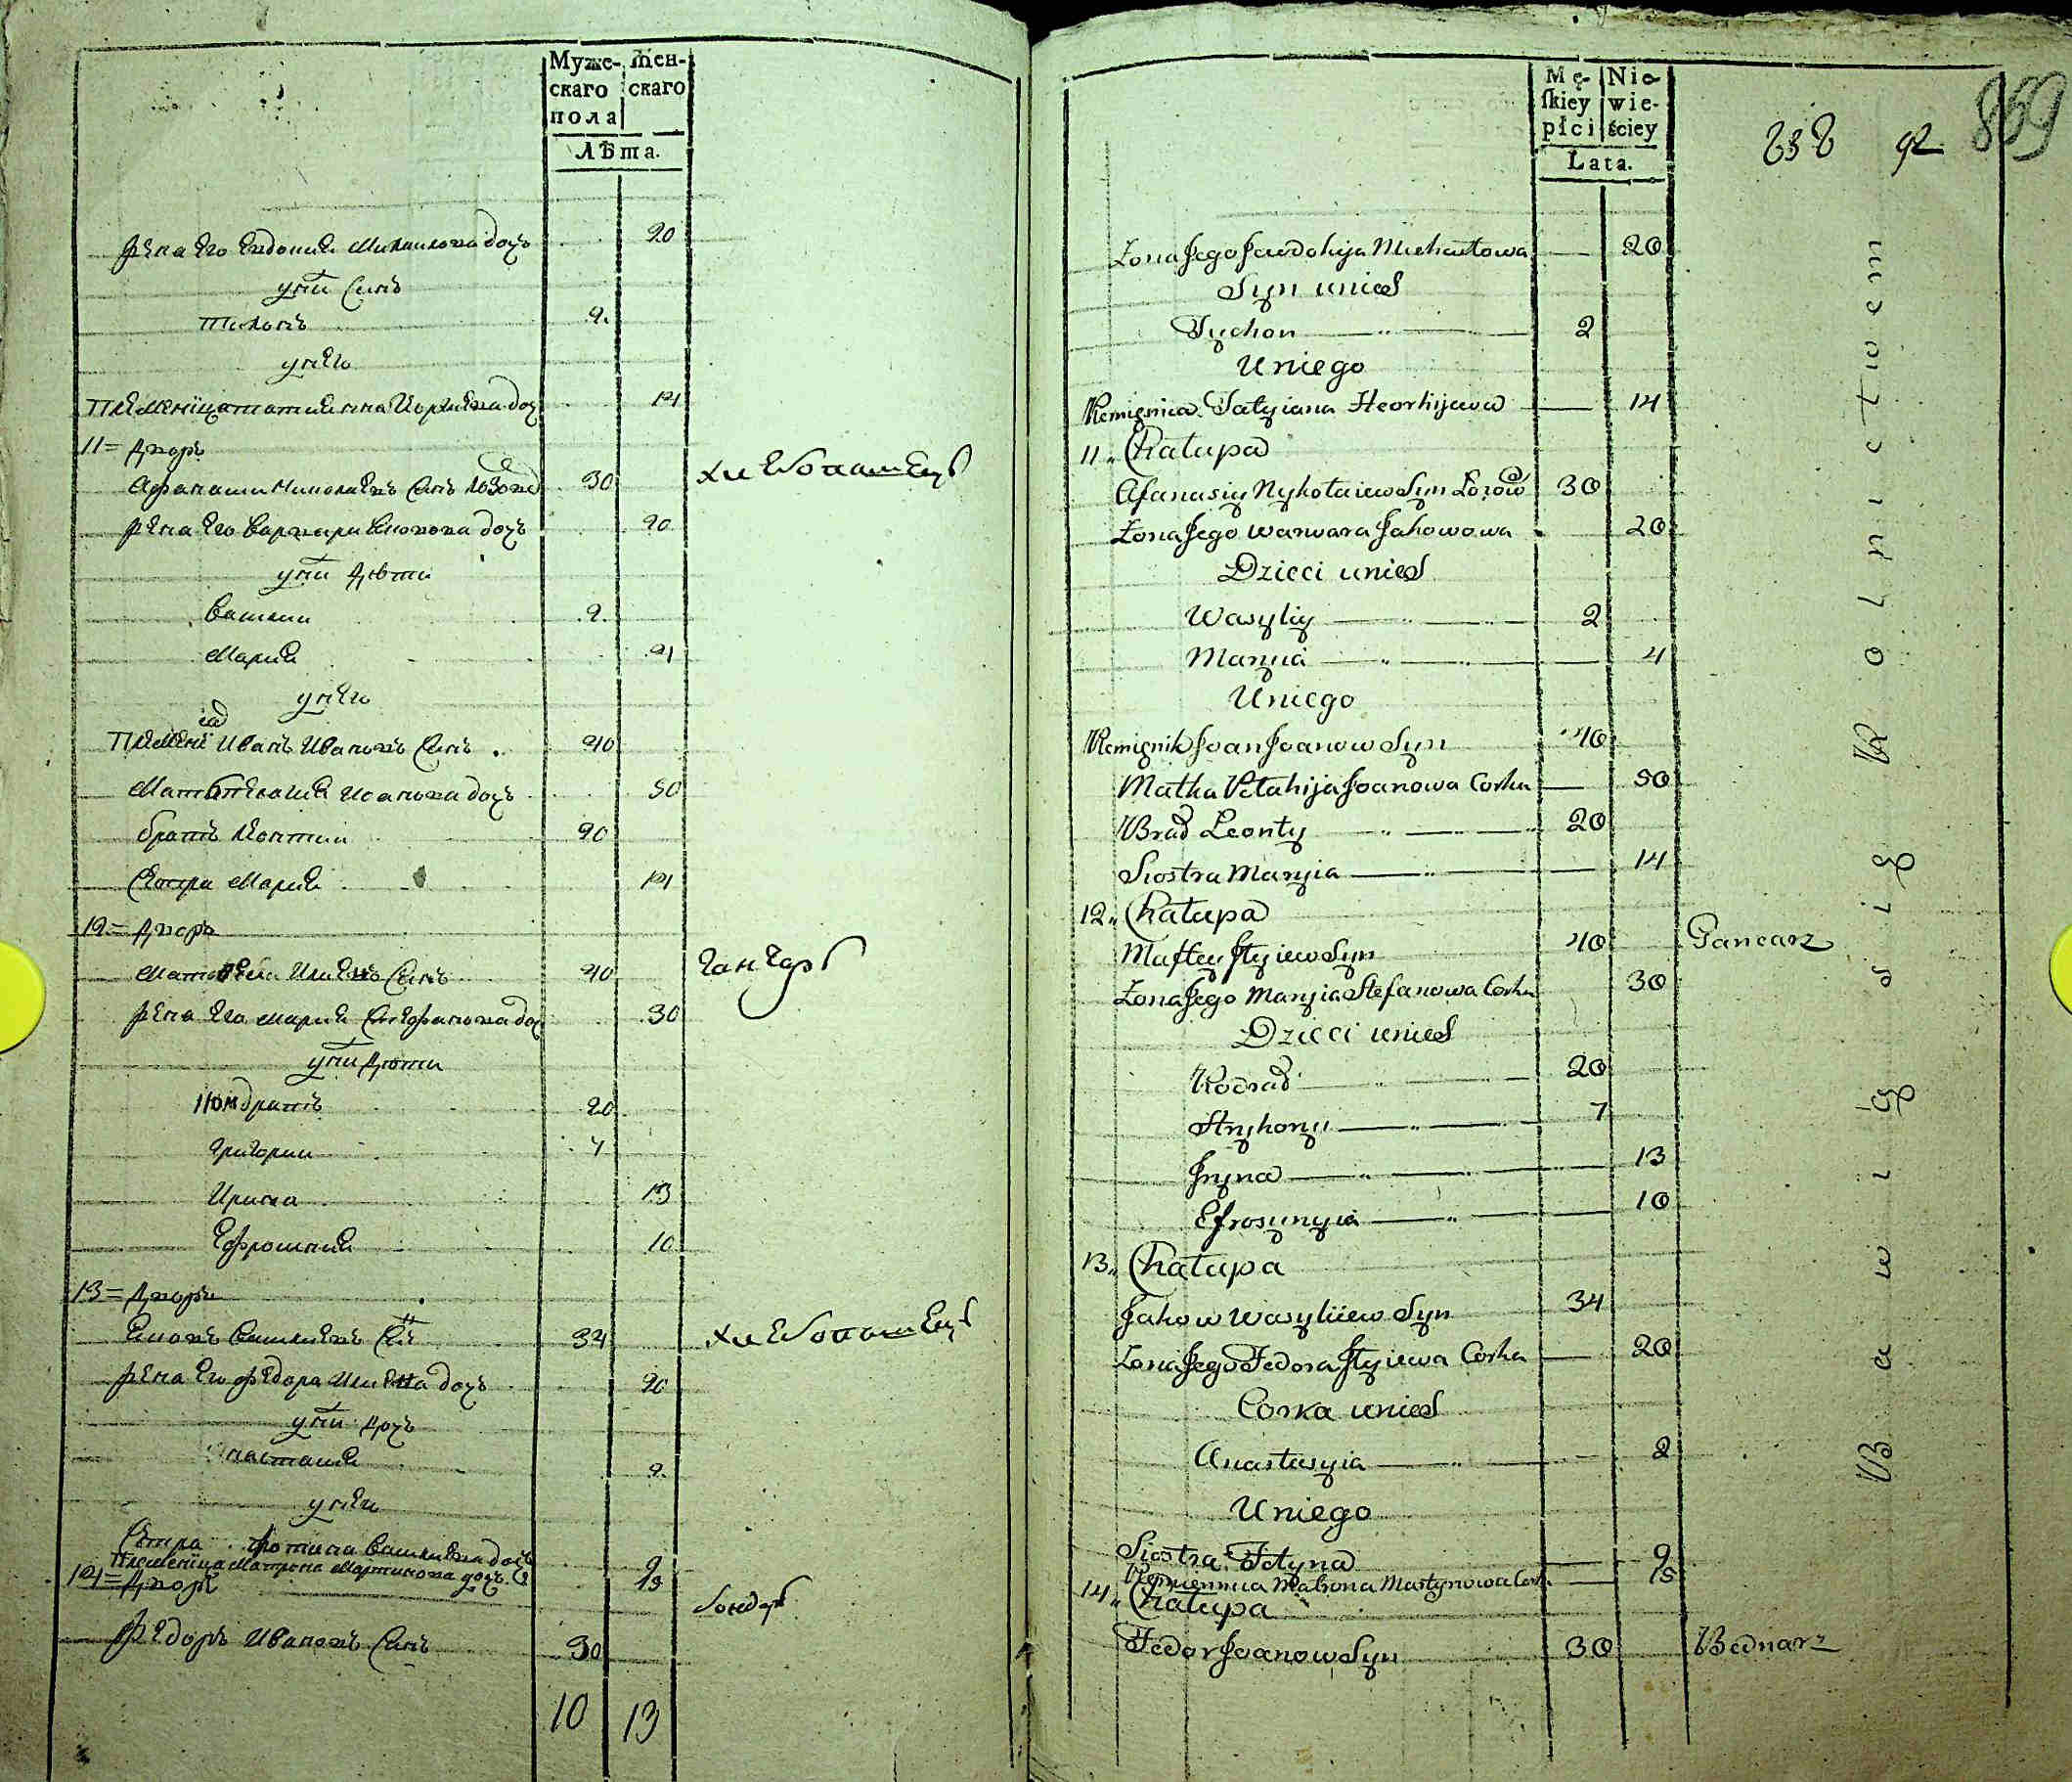 Муже-
скаго
пола
Жен-
скаго
Лѣта.
Жена Его Евдокия Михаилова дочь 20
у них Синъ
Тихонъ 2.
у него
Племеница Татиянна Иоргиева доч 14
11 = Дворъ
Афанаси Николаевъ Синъ Лозов 30 хлебопашецъ
Жена Его Варвара Яковова дочъ 20
у них Дѣти
Василии 2.
Мария 4
у него
Племенѣ Иванъ Ивановъ Синъ. 40
Мать Иванова дочъ 50
братъ Леонтии 20
Сестра Мария 14
12 = Дворъ
Матвѣй Илиевъ Синъ 40 ганчаръ
Жена Его Мария Стефанова доч 30
у них Дѣти
Кондратъ 20
Григории 7
Ирина 13
Ефросиния 10
13 = Дворъ
Яковъ Василиевъ Снъ 34 хлебопашецъ
Жена Его Федора Илиева дочъ 20
у них Дочъ
Анастасия 2.
у него
Сестра Фотина Василиева дочъ 9
Племеница Матрона Мартинова дочъ 15
14 = Дворъ бондаръ
Федоръ Ивановъ Синъ 30
10 13
Mę-
ſkiey
płci
Nie-
wie-
ściey
Lata.
859
Zona Jego Jewdokija Michaiłowa — 20
Syn unich
Tychon — 2
U niego
Plemięnica Tatyiana Heorhijewa — 14
11„ Chałupa
Afanasiy Nykołaiew Syn Łozow 30
Zona Jego Warwara Jakowowa 20
Dzieci unich
Wasyliy — 2
Maryia — 4
U niego
Plemięnik Joan Joanow Syn 40
Matka Joanowa Corka — 50
Brad Leonty — 20
Siostra Maryia — 14
12„ Chałupa
Maftey Jlyiew Syn 40 Gancarz
Zona Jego Maryia Stefanowa Corka 30
Dzieci unich
Kodrad — 20
Hryhoryi — 7
Jryna — 13
Efrosynyia — 10
13„ Chałupa
Jakow Wasyliiew Syn 34
Zona Jego Fedora Jlyiewa Corka — 20
Corka unich
Anastasyia — 2
U niego
Siostra Fotyna — 9
Plemiennica Matrona Martynowa Cork. — 15
14„ Chałupa
Fedor Joanow Syn 30 Bednarz
Bawią się Rolnictwem